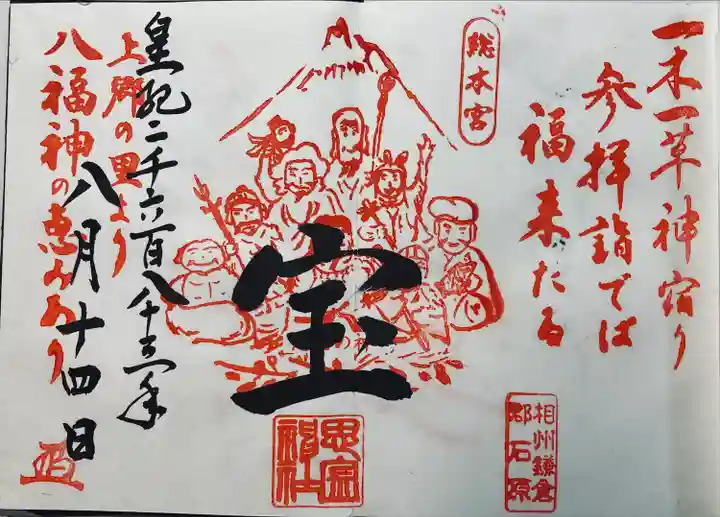 一木一草神宿り
参拝詣でば
福来たる
総本宮
宝
相州鎌倉
郡石原
思金
神社
皇紀二千六百八十三年
八月十四日
上郷の里より
八福神の恵みあり